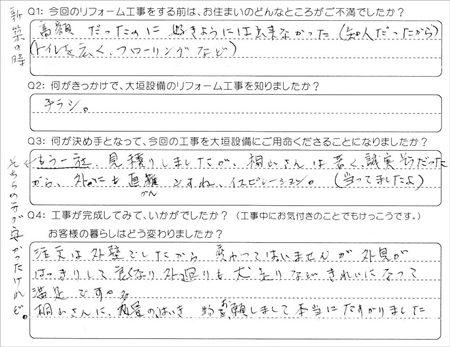 Q1: 今回のリフォーム工事をする前は、お住まいのどんなところがご不満でしたか?
新築の時
高額だったのに 好きようには出来なかった (知人だったから)
(トイレを広く、フローリングなど)
Q2: 何がきっかけで、大垣設備のリフォーム工事を知りましたか?
チラシ。
Q3: 何が決め手となって、今回の工事を大垣設備にご用命くださることになりましたか?
もう一社、見積りしましたが、桐山さんは若く、誠実そうだった
から、外にも直感ですね、インスピレーション。 (当ってましたよ)
そちらの方が安かったけれど。
Q4: 工事が完成してみて、いかがでしたか? (工事中にお気付きのことでもけっこうです。)
お客様の暮らしはどう変わりましたか?
注文は外壁でしたから 変わってはいませんが 外見が
はっきりして 外回りも 犬走りなど きれいになって
満足です。
桐山さんに、お願しまして 本当に たすかりました